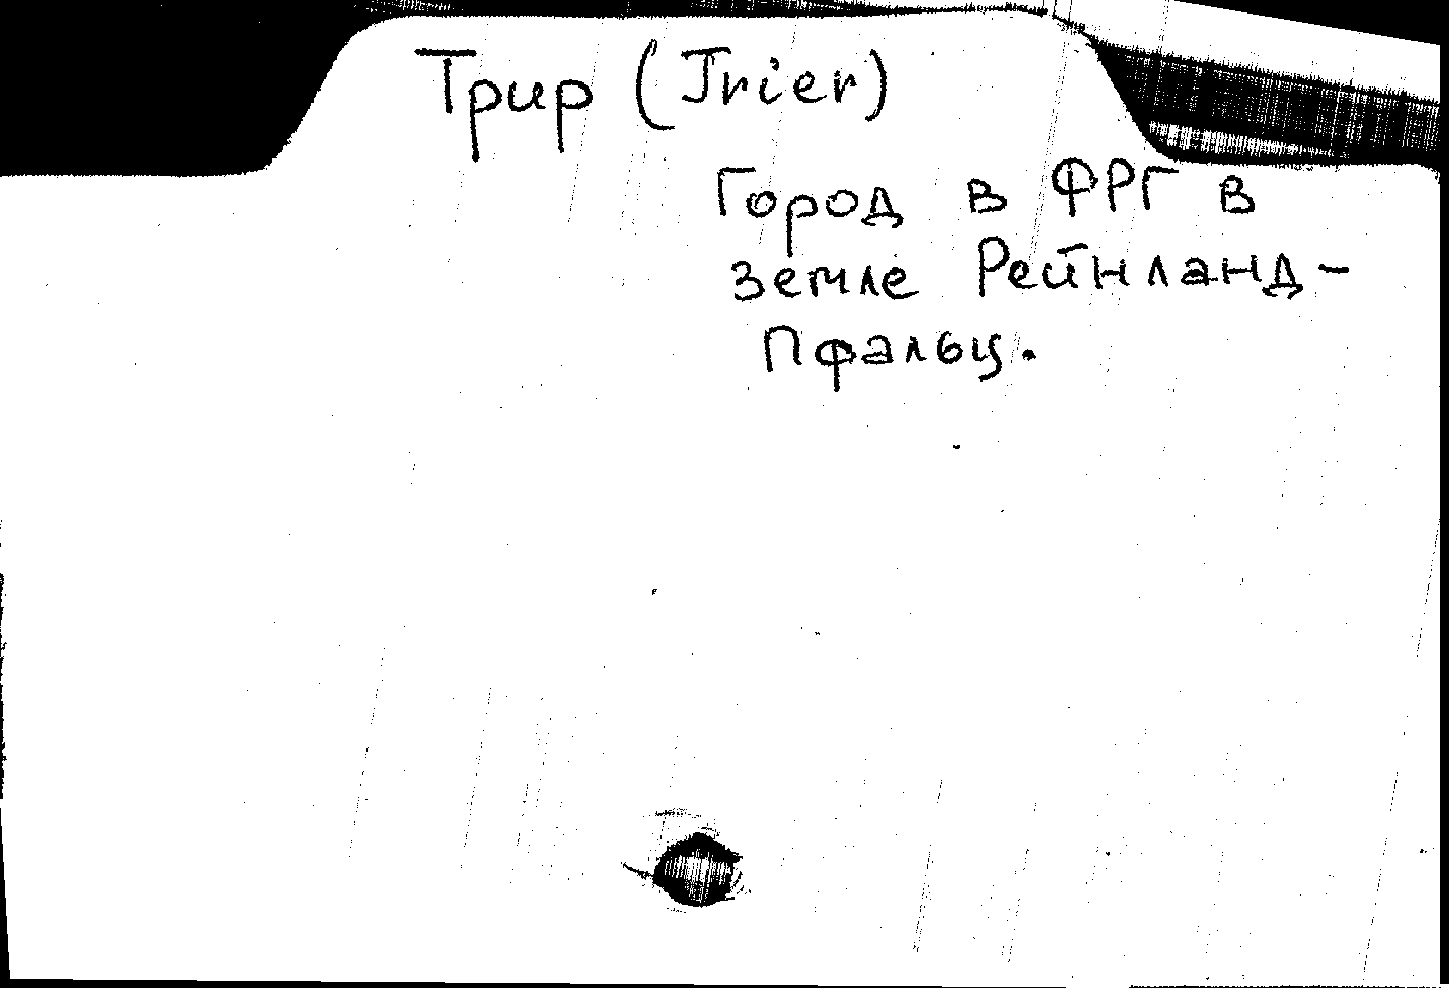 Трир (Trier)
Город в ФРГ в
земле Рейнланд-
Пфальц.